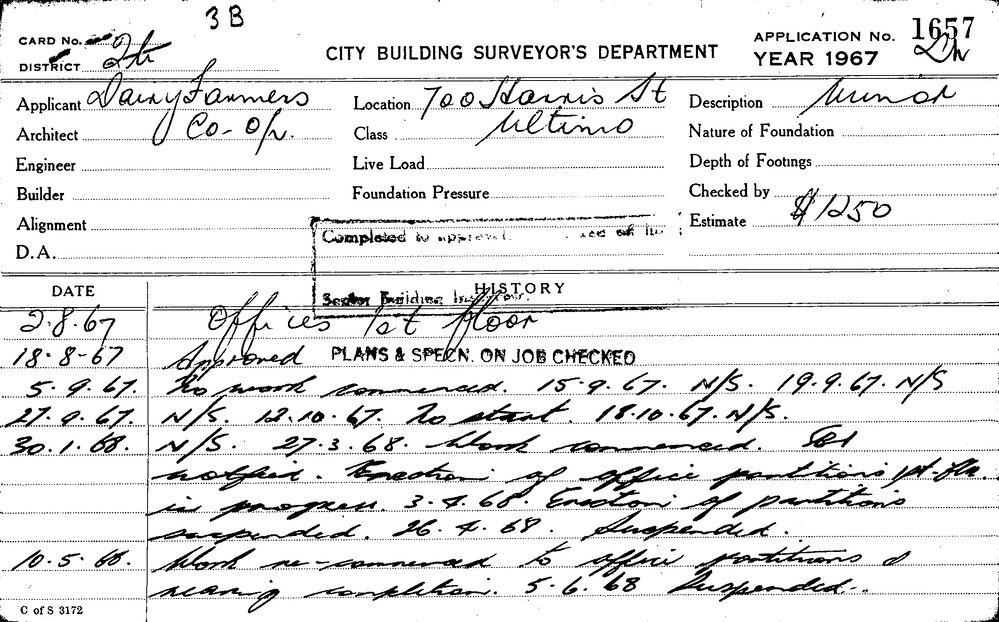 3B
CARD No.
DISTRICT 2h
CITY BUILDING SURVEYOR'S DEPARTMENT
APPLICATION No. 1657
YEAR 1967 2h
Applicant Dairy Farmers Location 700 Harris St Description Minor
Architect Co-Op. Class Ultimo Nature of Foundation
Engineer Live Load Depth of Footings
Builder Foundation Pressure Checked by
Alignment Estimate $1250
Completed to approval.
D.A.
Senior Building Inspector.
DATE HISTORY
2.8.67 Offices 1st floor
18.8-67 Approved PLANS & SPECN. ON JOB CHECKED
5.9.67. No work commenced. 15.9.67. N/S. 19.9.67. N/S
27.9.67. N/S. 12.10.67. No start. 18.10.67. N/S.
30.1.68. N/S. 27.3.68. Work commenced.
notified. Erection of office partitions 1st flr.
in progress. 3.4.68. Erection of partitions
suspended. 26.4.68. Suspended.
10.5.68. Work re-commenced to office partitions &
nearing completion. 5.6.68 Suspended..
C of S 3172